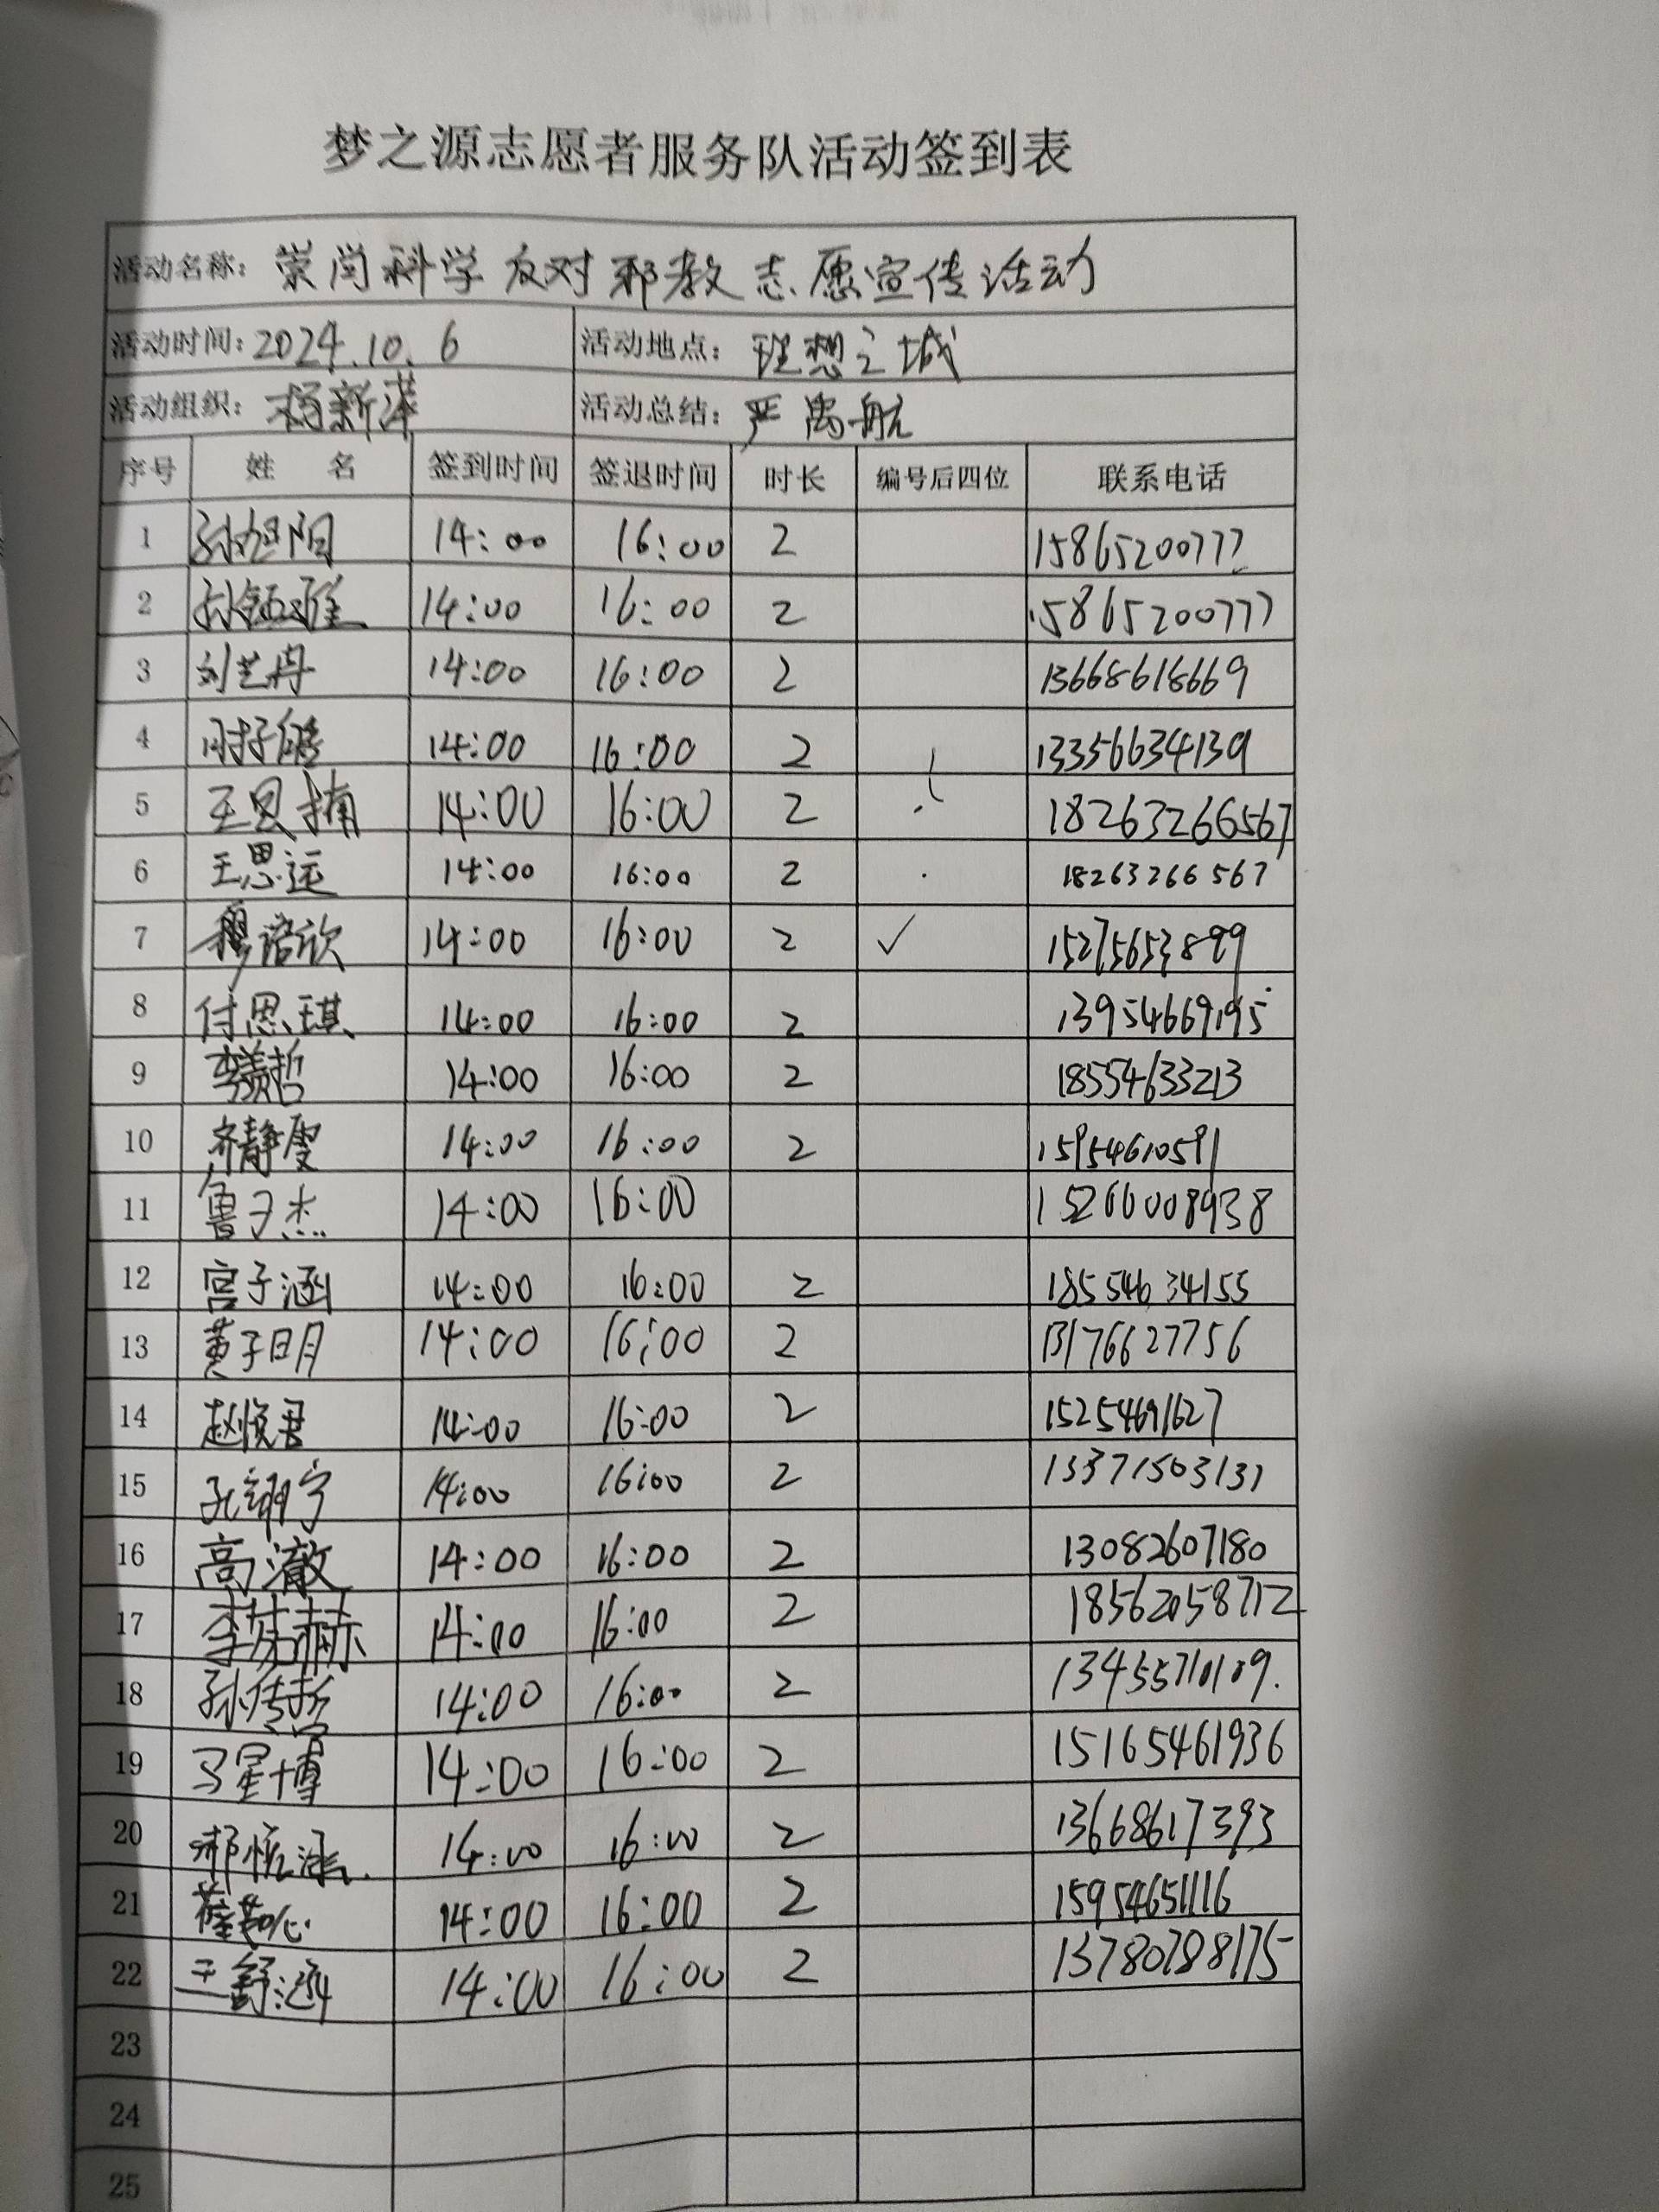 梦之源志愿者服务队活动签到表
活动名称：崇尚科学反对邪教志愿宣传活动
活动时间：2024.10.6 活动地点：理想之城
活动组织：杨新泽 活动总结：严禹航
序号 姓名 签到时间 签退时间 时长 编号后四位 联系电话
1 孙旭阳 14:00 16:00 2 15865200777
2 孙钰雅 14:00 16:00 2 15865200777
3 刘艺冉 14:00 16:00 2 13668618669
4 14:00 16:00 2 13356634139
5 王思楠 14:00 16:00 2 18263266567
6 王思运 14:00 16:00 2 18263266567
7 穆诺欣 14:00 16:00 2 ✓ 15275653899
8 付恩琪 14:00 16:00 2 13954669195
9 李羲哲 14:00 16:00 2 18554633213
10 齐静雯 14:00 16:00 2 15954610591
11 鲁子杰 14:00 16:00 15266008938
12 宫子涵 14:00 16:00 2 18554634155
13 黄子明 14:00 16:00 2 13176627756
14 赵悦君 14:00 16:00 2 15254691627
15 孔翊宁 14:00 16:00 2 13371503131
16 高澈 14:00 16:00 2 13082607180
17 李茗赫 14:00 16:00 2 18562058712
18 孙传哲 14:00 16:00 2 13455710109.
19 马星博 14:00 16:00 2 15165461936
20 郝悦涵 14:00 16:00 2 13668617393
21 14:00 16:00 2 15954651116
22 王舒涵 14:00 16:00 2 13780788175
23
24
25